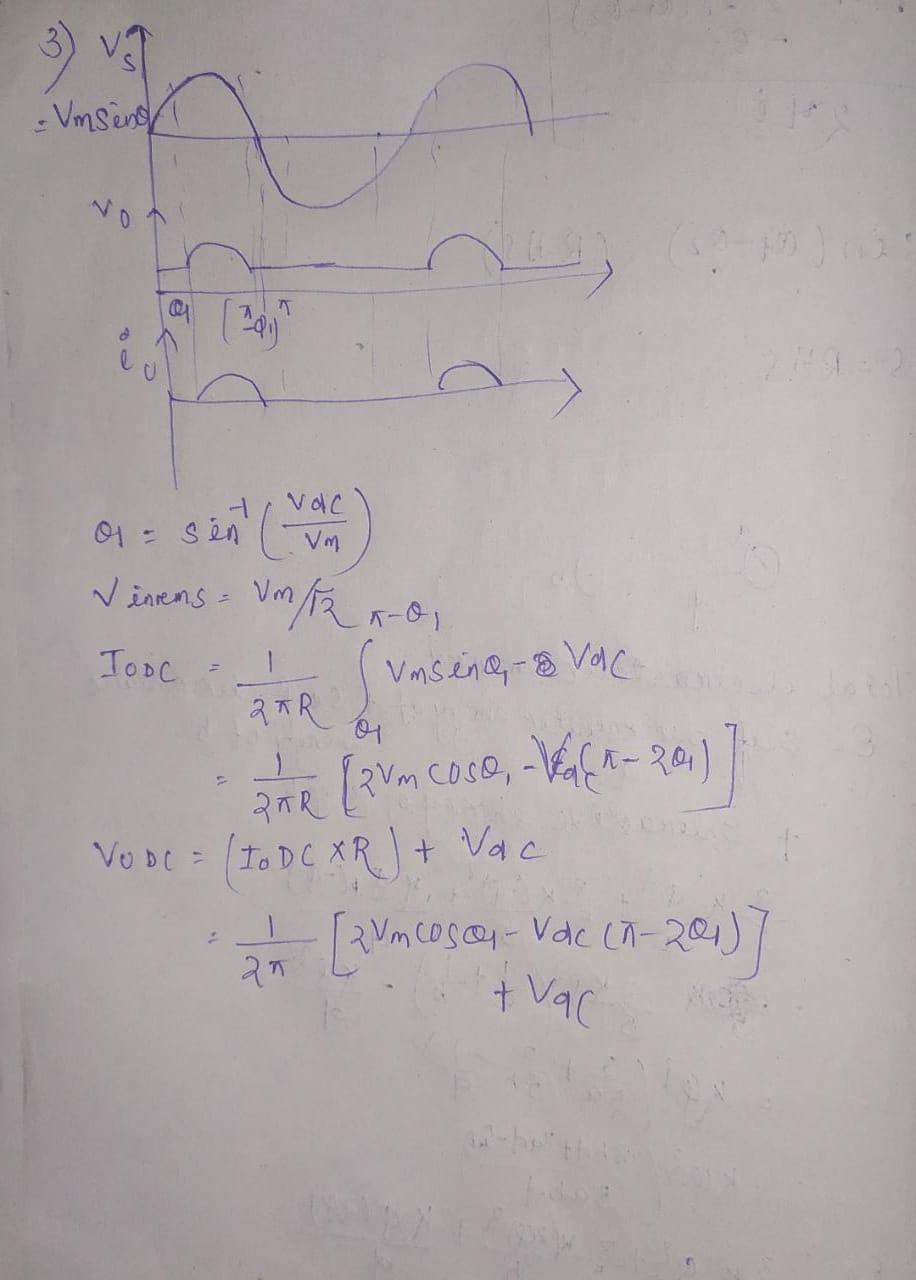 3) Vs
= Vmsinθ
vo
θ1 (π-θ1) π
io
θ1 = sin⁻¹ (Vdc/Vm)
Vinrms = Vm/√2
IoDC = 1/2πR ∫θ1^π-θ1 Vmsinθ1 - Vdc
= 1/2πR [2Vm cosθ1 - Vdc(π-2θ1)]
VoDC = (IoDC x R) + Vdc
= 1/2π [2Vmcosθ1 - Vdc (π-2θ1)]
+ Vdc